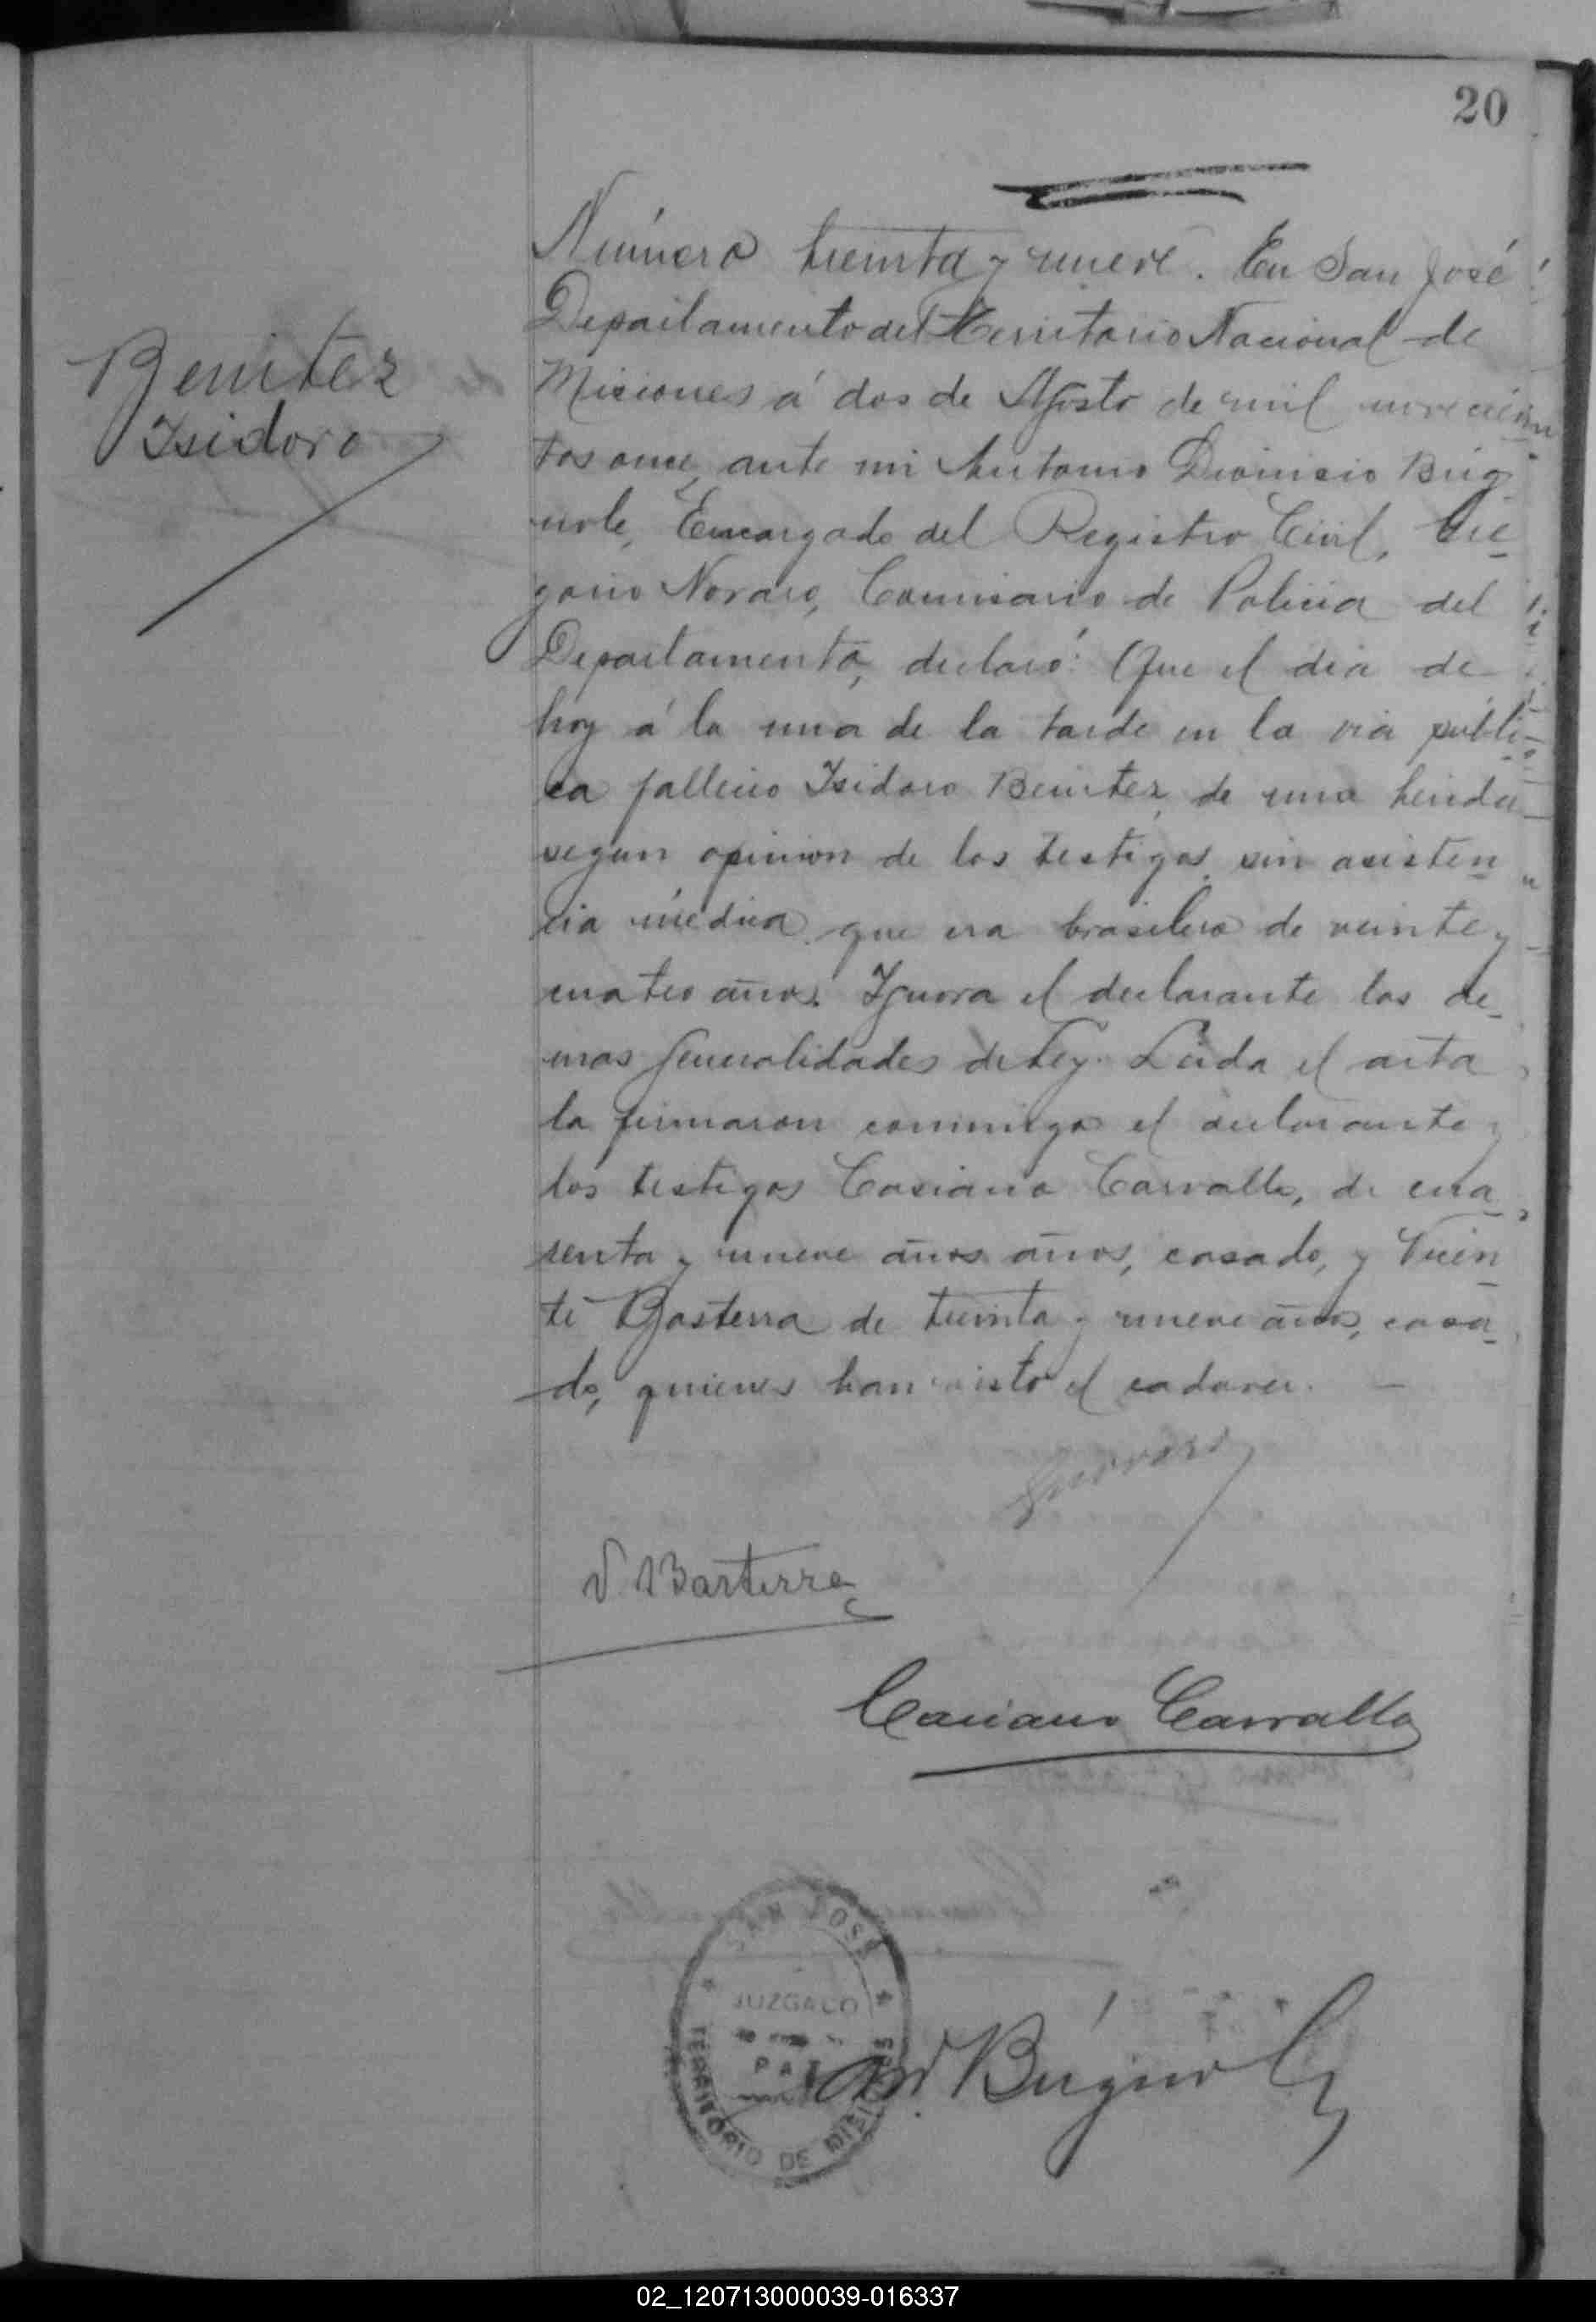 20
Número treinta y nueve. En San José
Departamento del Territorio Nacional de
Benitez
Isidoro
Misiones á dos de Agosto de mil novecien
tos once, ante mi Antonio Dionisio Bug
nole, Encargado del Registro Civil, Gre-
gorio Novaro, Comisario de Policia del
Departamento, declaró: Que el dia de
hoy á la una de la tarde en la via públi-
ca fallecio Isidoro Benitez, de una herida
segun opinion de los testigos, sin asisten
cia médica, que era brasilero de veinte y
cuatro años. Ignora el declarante las de-
mas generalidades de Ley. Leida el acta
la firmaron conmigo el declarante y
los testigos Casiano Carvallo, de cua-
renta y nueve años años, casado, y Vicen
te Basterra de treinta y nueve años, casa-
do, quienes han visto el cadaver. —
V. Basterra
Casiano Carvallo
SAN JOSE
JUZGADO
DE
PAZ
TERRITORIO DE MISIONES
A D Bugnole
02_120713000039-016337